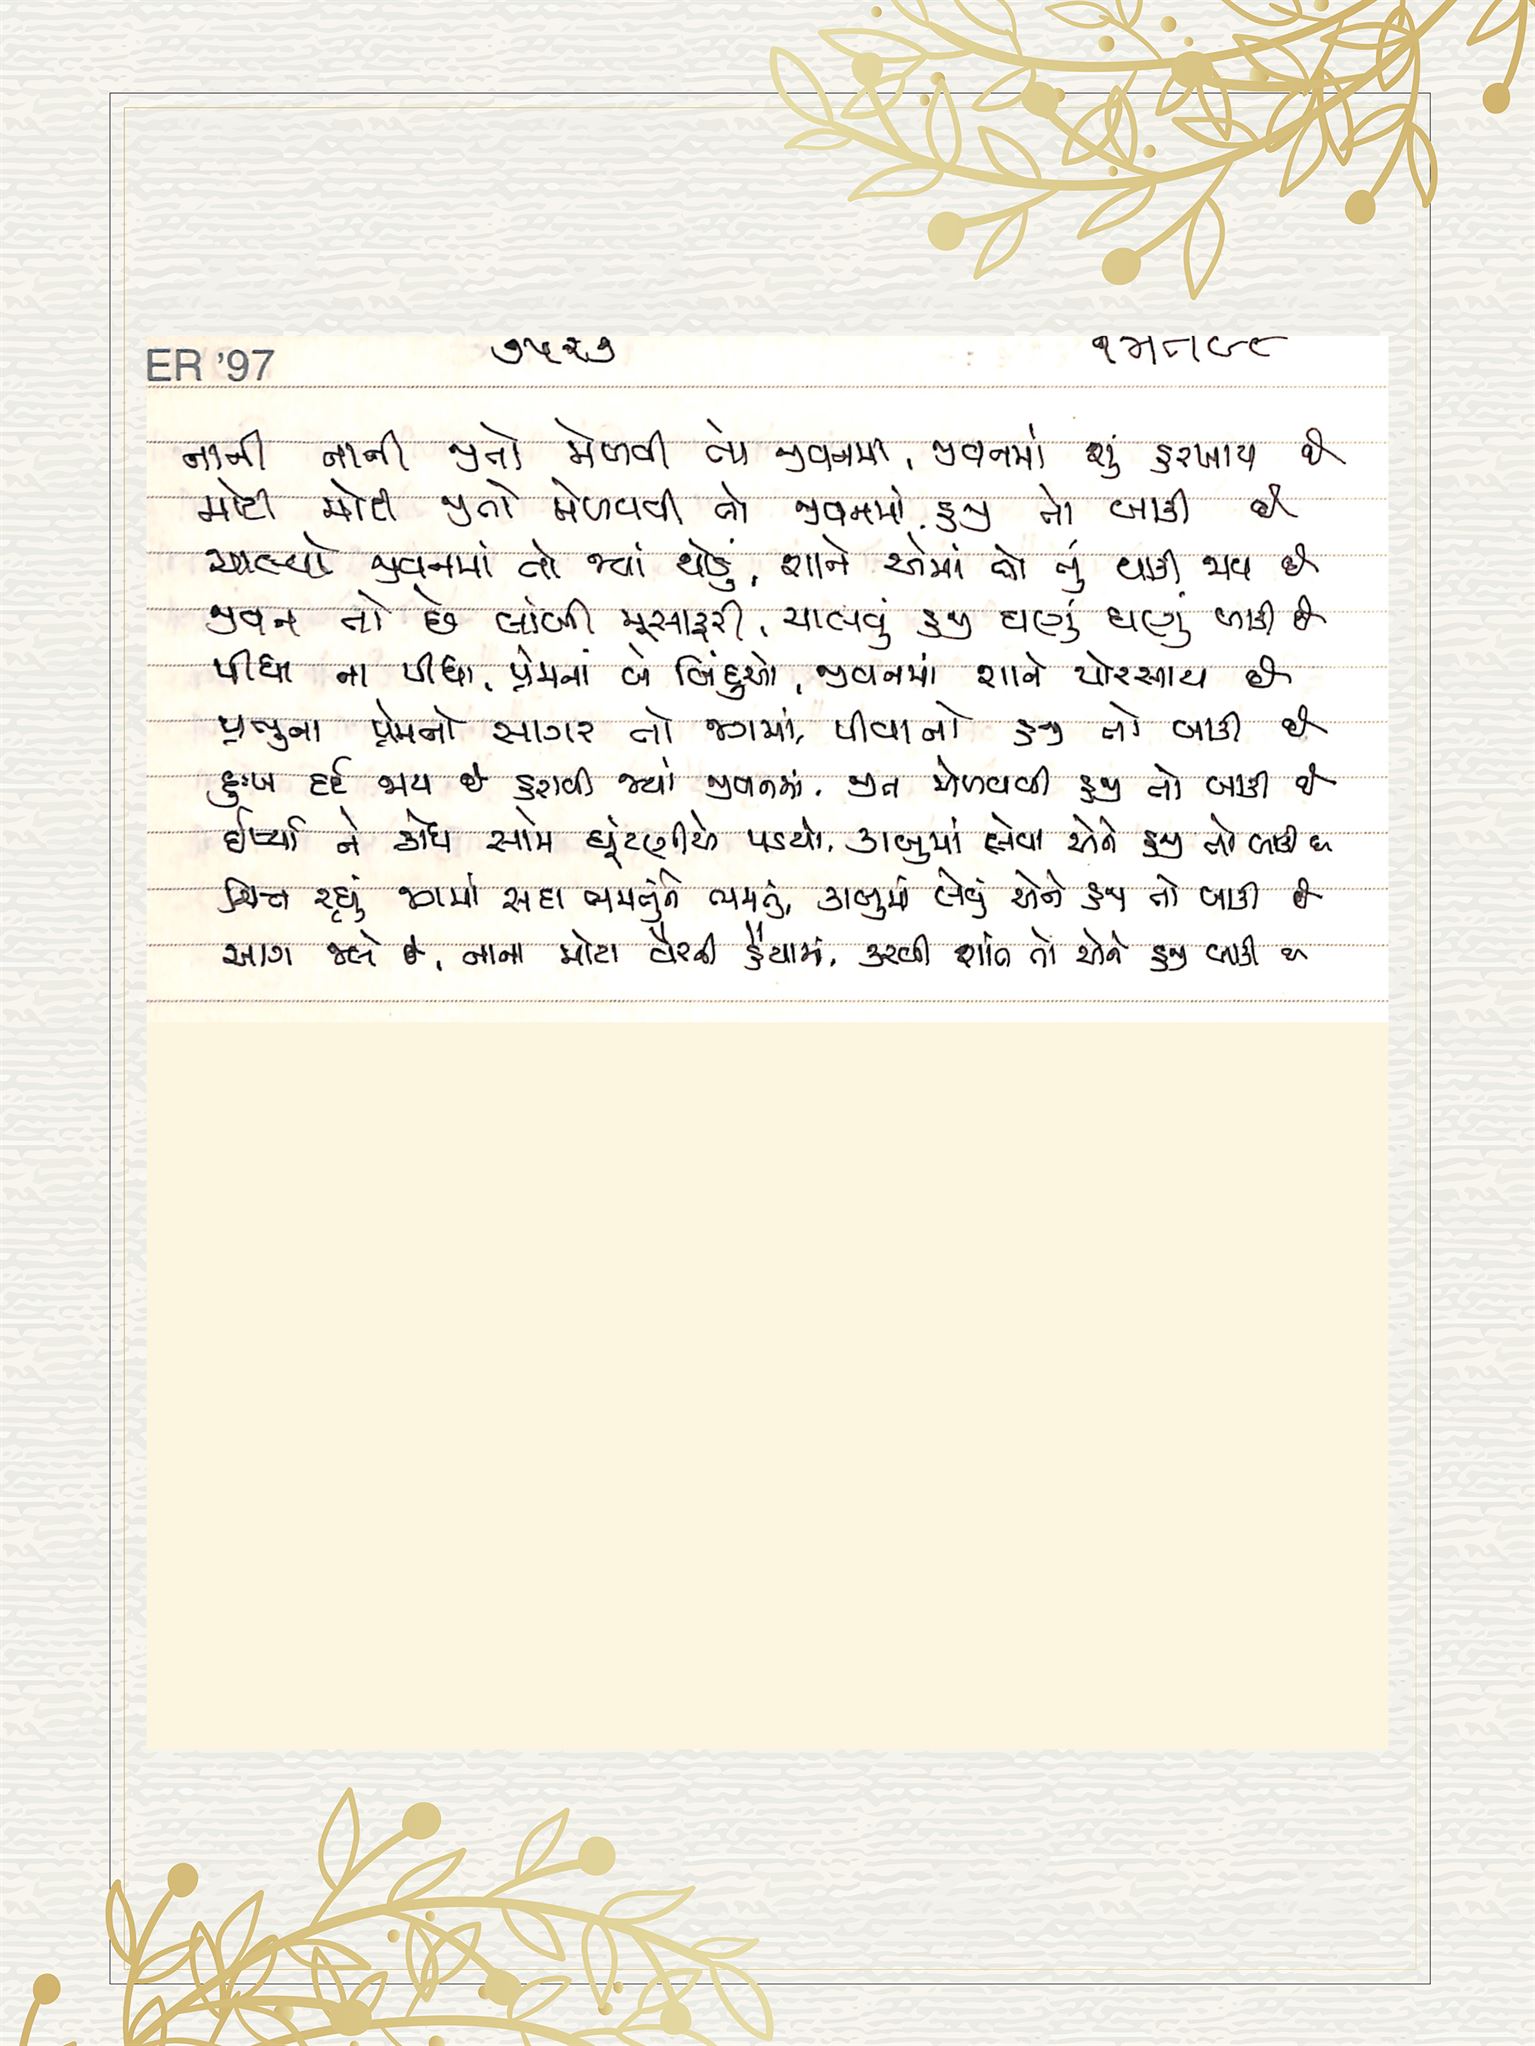 ER '97 ૭૫૨૭
નાની નાની જીતો મેળવી તેં જીવનમાં, જીવનમાં શું હરખાય છે
મોટી મોટી જીતો મેળવવી તો જીવનમાં, હજી તો બાકી છે
ચાલ્યો જીવનમાં તો જ્યાં થોડું, શાને એમાં તો તું થાકી જાય છે
જીવન તો છે લાંબી મૂસાફરી, ચાલવું હજી ઘણું ઘણું બાકી છે
પીધા ના પીધા, પ્રેમનાં બે બિંદુઓ, જીવનમાં શાને પોરસાય છે
પ્રભુના પ્રેમનો સાગર તો જગમાં, પીવાનો હજી તો બાકી છે
દુઃખ દર્દ જાય છે હરાવી જ્યાં જીવનમાં, જીત મેળવવી હજી તો બાકી છે
ઈર્ષ્યા ને ક્રોધ સામે ઘૂંટણીએ પડયો, કાબુમાં લેવા એને હજી તો બાકી છે
ચિત્ત રહ્યું જગમાં સદા ભમતુંને ભમતું, કાબુમાં લેવું એને હજી તો બાકી છે
આગ જલે છે, નાના મોટા વૈરની હૈયામાં, કરવી શાંત તો એને હજી બાકી છે